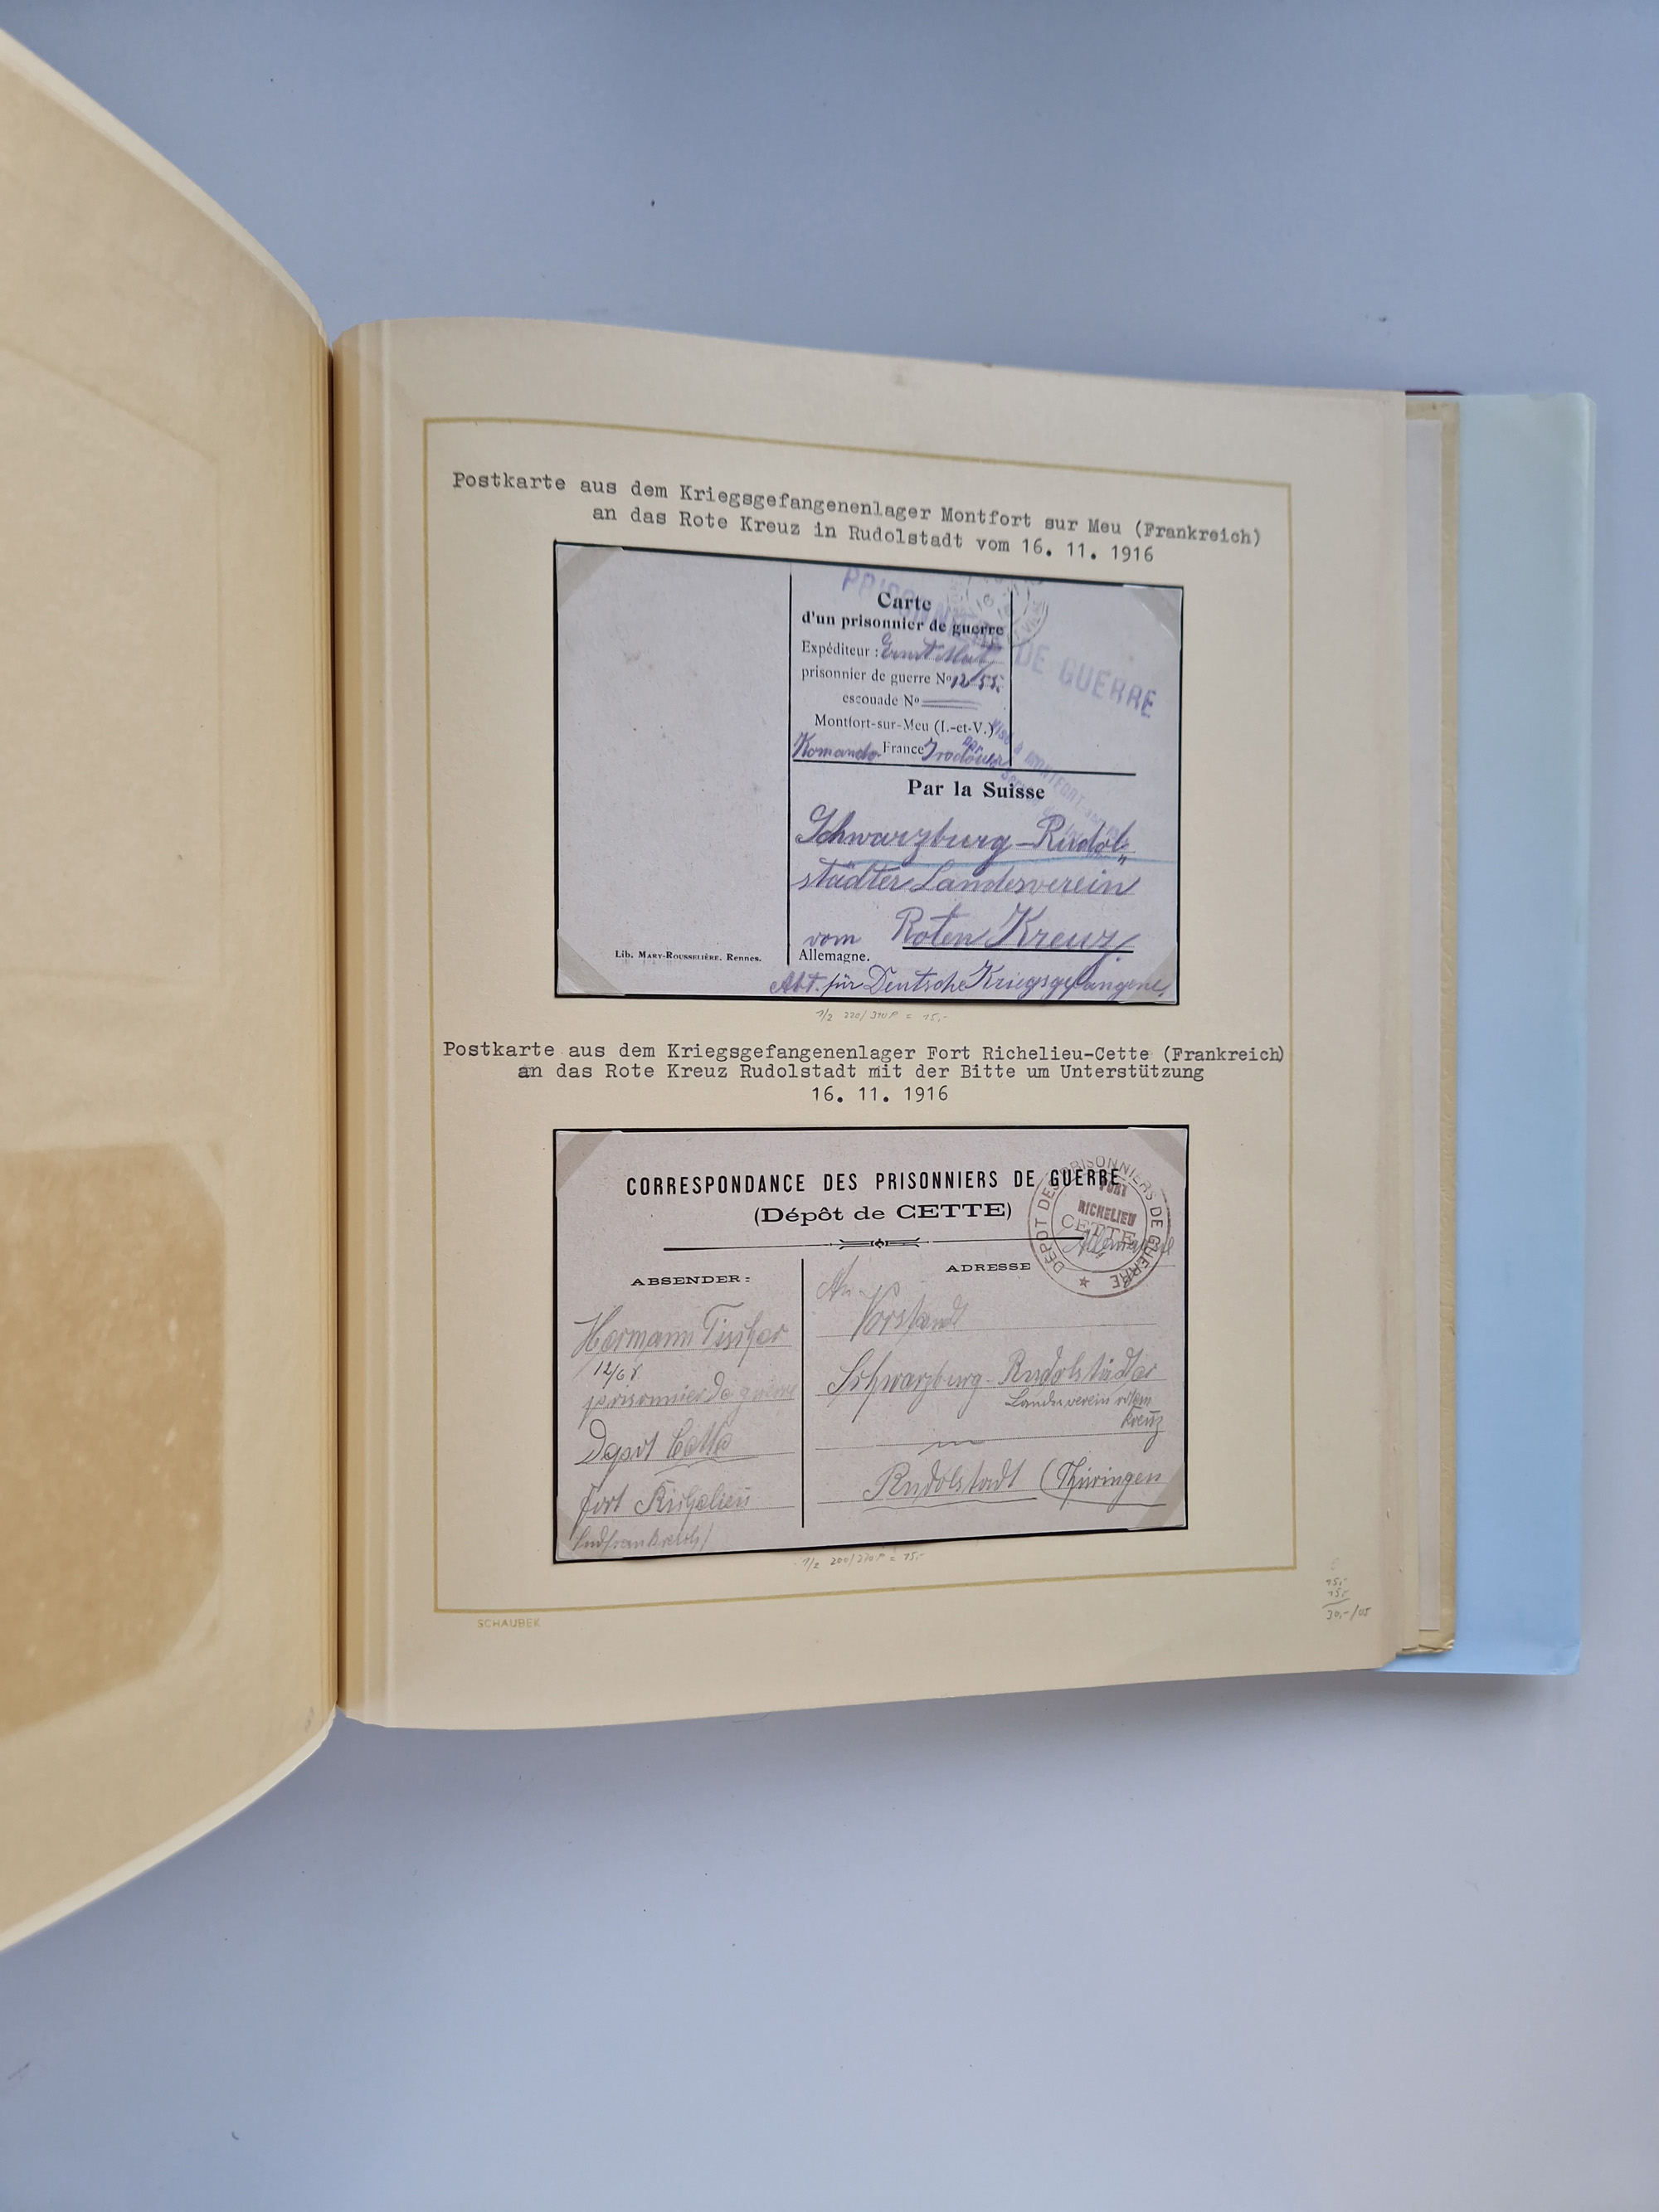 Postkarte aus dem Kriegsgefangenenlager Montfort sur Meu (Frankreich)
an das Rote Kreuz in Rudolstadt vom 16. 11. 1916
PRISONNIER DE GUERRE
Carte
d'un prisonnier de guerre
Expéditeur : Ernst
prisonnier de guerre No 1255.
escouade No
Montfort-sur-Meu (I.-et-V.)
Komando France Irodouer
Par la Suisse
Schwarzburg-Rudol-
städter Landesverein
vom Roten Kreuz.
Lib. Mary-Rousselière. Rennes.
Allemagne.
Abt. für Deutsche Kriegsgefangene.
1/2 220/310 P = 15,-
Postkarte aus dem Kriegsgefangenenlager Fort Richelieu-Cette (Frankreich)
an das Rote Kreuz Rudolstadt mit der Bitte um Unterstützung
16. 11. 1916
CORRESPONDANCE DES PRISONNIERS DE GUERRE
(Dépôt de CETTE)
DEPOT DES PRISONNIERS DE GUERRE
FORT
RICHELIEU
CETTE
Allemagne
ABSENDER :
ADRESSE
An
Vorstand
Hermann Tischer
12/68
Schwarzburg-Rudolstädter
prisonnier de guerre
Landesverein roten
Kreuz
Depot Cette
in
Rudolstadt (Thüringen
Fort Richelieu
Südfrankreich)
1/2 200/270 P = 15,-
15,-
15,-
30,-/05
SCHAUBEK